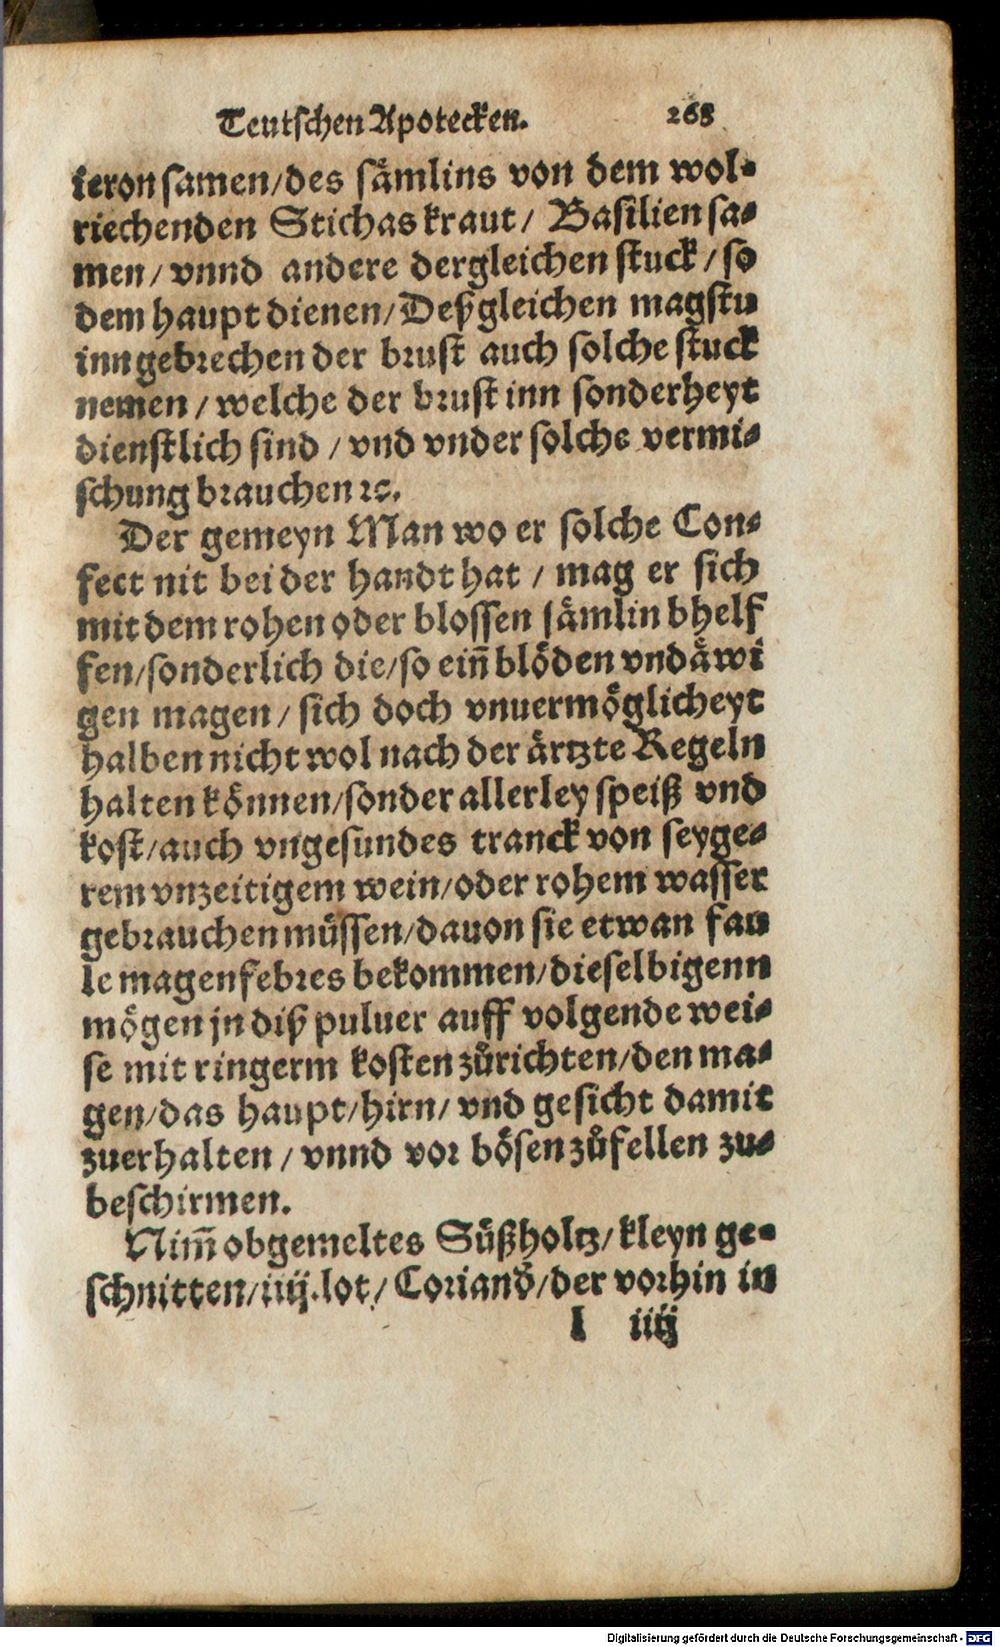 Teutschen Apotecken. 268
teron samen/des sämlins von dem wol⸗
riechenden Stichas kraut/ Basilien sa⸗
men/ vnnd andere dergleichen stuck/so
dem haupt dienen/Deßgleichen magstu
inn gebrechen der brust auch solche stuck
nemen/welche der brust inn sonderheyt
dienstlich sind/vnd vnder solche vermi⸗
schung brauchen ꝛc.
Der gemeyn Man wo er solche Con⸗
fect nit bei der handt hat/mag er sich
mit dem rohen oder blossen sämlin bhelf
fen/sonderlich die/so ein̄ blöden vndäwi
gen magen/sich doch vnuermöglicheyt
halben nicht wol nach der ärtzte Regeln
halten können/sonder allerley speiß vnd
kost/auch vngesundes tranck von seyge⸗
rem vnzeitigem wein/oder rohem wasser
gebrauchen müssen/dauon sie etwan fau
le magenfebres bekommen/dieselbigenn
mögen jn diß puluer auff volgende wei⸗
se mit ringerm kosten zůrichten/den ma⸗
gen/das haupt/hirn/vnd gesicht damit
zuerhalten/vnnd vor bösen zůfellen zu⸗
beschirmen.
Nim̄ obgemeltes Süßholtz/kleyn ge⸗
schnitten/iiij.lot/Coriand̕/der vorhin in
l iiij
Digitalisierung gefördert durch die Deutsche Forschungsgemeinschaft - DFG